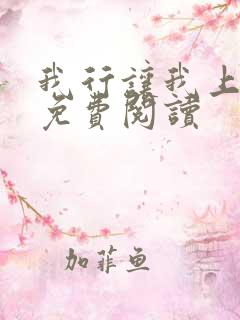 我行讓我上
免費閱讀
加菲鱼